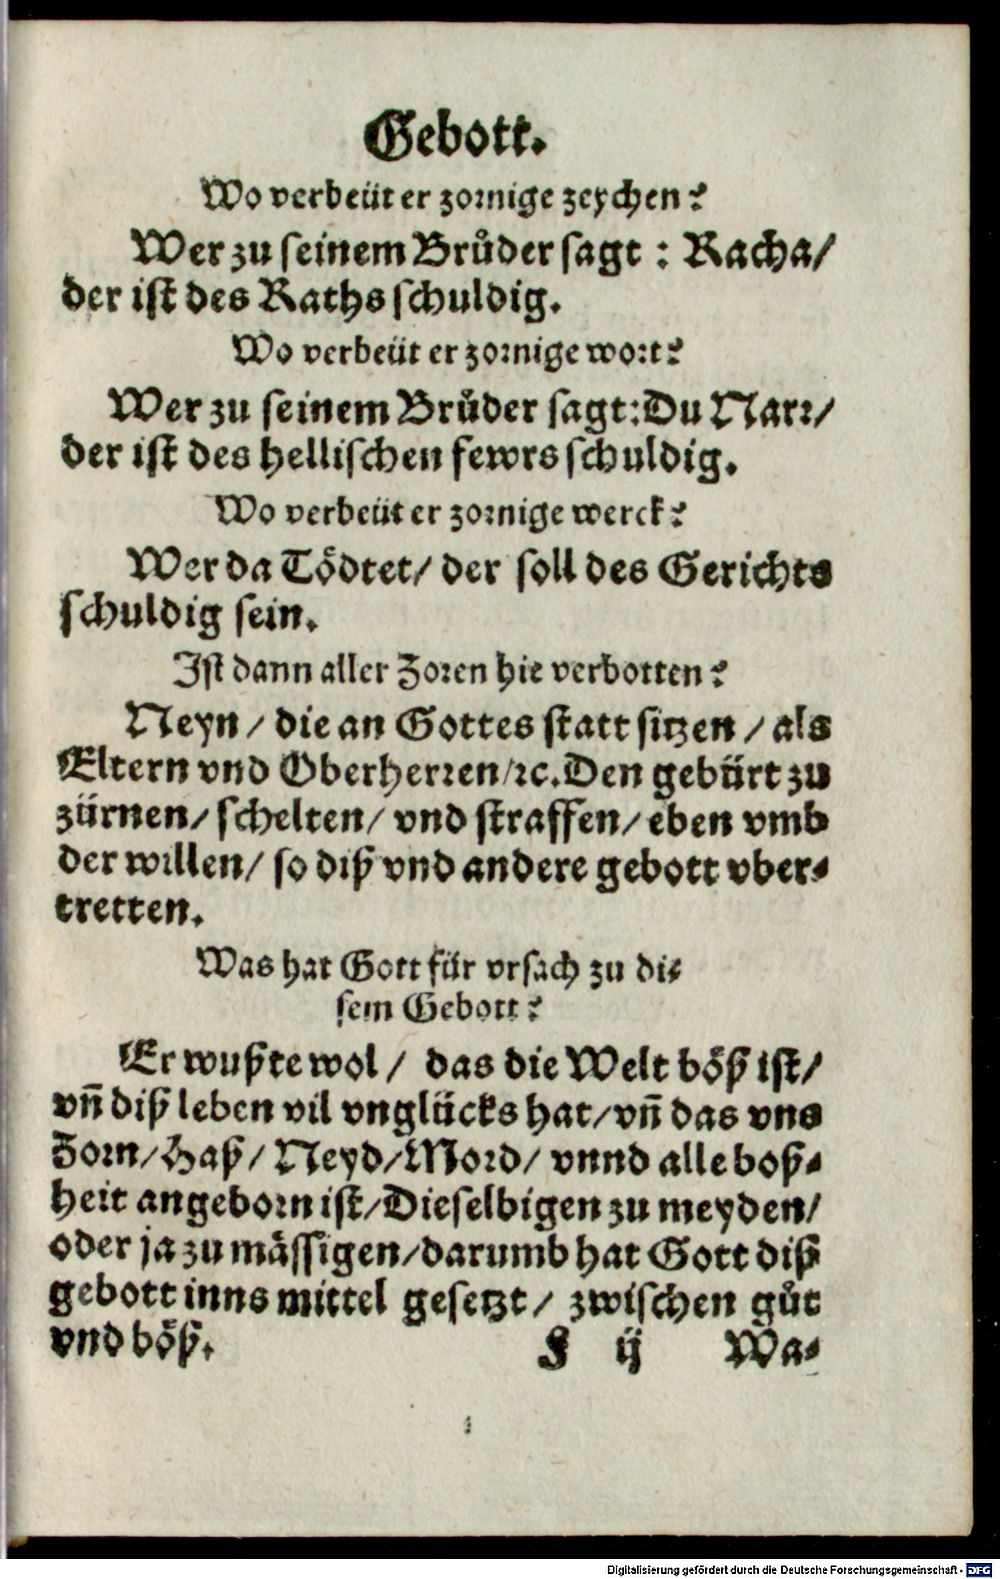 Gebott.
Wo verbeüt er zornige zeychen?
Wer zu seinem Brůder sagt: Racha/
der ist des Raths schuldig.
Wo verbeüt er zornige wort?
Wer zu seinem Brůder sagt: Du Narr/
der ist des hellischen fewrs schuldig.
Wo verbeüt er zornige werck?
Wer da Tödtet/ der soll des Gerichts
schuldig sein.
Ist dann aller Zoren hie verbotten?
Neyn/ die an Gottes statt sitzen/ als
Eltern vnd Oberherren/ꝛc. Den gebürt zu
zürnen/ schelten/ vnd straffen/ eben vmb
der willen/ so diß vnd andere gebott vber-
tretten.
Was hat Gott für vrsach zu di-
sem Gebott?
Er wußte wol/ das die Welt böß ist/
vñ diß leben vil vnglücks hat/ vñ das vns
Zorn/ Haß/ Neyd/ Mord/ vnnd alle boß-
heit angeborn ist/ Dieselbigen zu meyden/
oder ja zu mässigen/ darumb hat Gott diß
gebott inns mittel gesetzt/ zwischen gůt
vnd böß. F ij Wa-
Digitalisierung gefördert durch die Deutsche Forschungsgemeinschaft - DFG